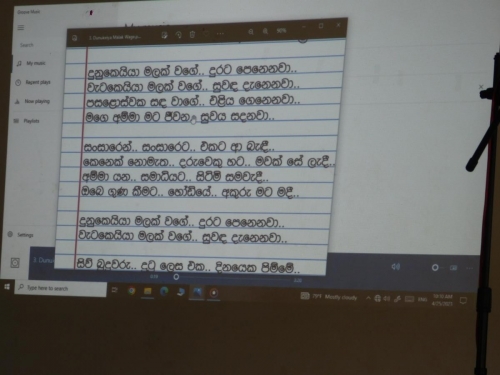 Search
My music
Recent plays
Now playing
Playlists
Settings
90%
දුනුකෙයියා මලක් වගේ.. දුරට පෙනෙනවා..
වැටකෙයියා මලක් වගේ.. සුවඳ දැනෙනවා..
පසළොස්වක සඳ වාගේ.. එළිය ගෙනෙනවා..
මගෙ අම්මා මට ජීවන සුවය සදනවා..
සංසාරෙන්.. සංසාරෙට.. එකට ආ බැඳී..
කෙනෙක් නොමැත.. දරුවෙකු හට.. මවක් සේ ලැදී..
අම්මා යන.. සමාධියට.. සිටිම් සමවැදී..
ඔබෙ ගුණ කීමට.. හෝඩියේ.. අකුරු මට මදී..
දුනුකෙයියා මලක් වගේ.. දුරට පෙනෙනවා..
වැටකෙයියා මලක් වගේ.. සුවඳ දැනෙනවා..
සිව් බුදුවරු.. දුටු ලෙස එක.. දිනයෙක පිම්මේ..
Type here to search
Mostly cloudy
ENG